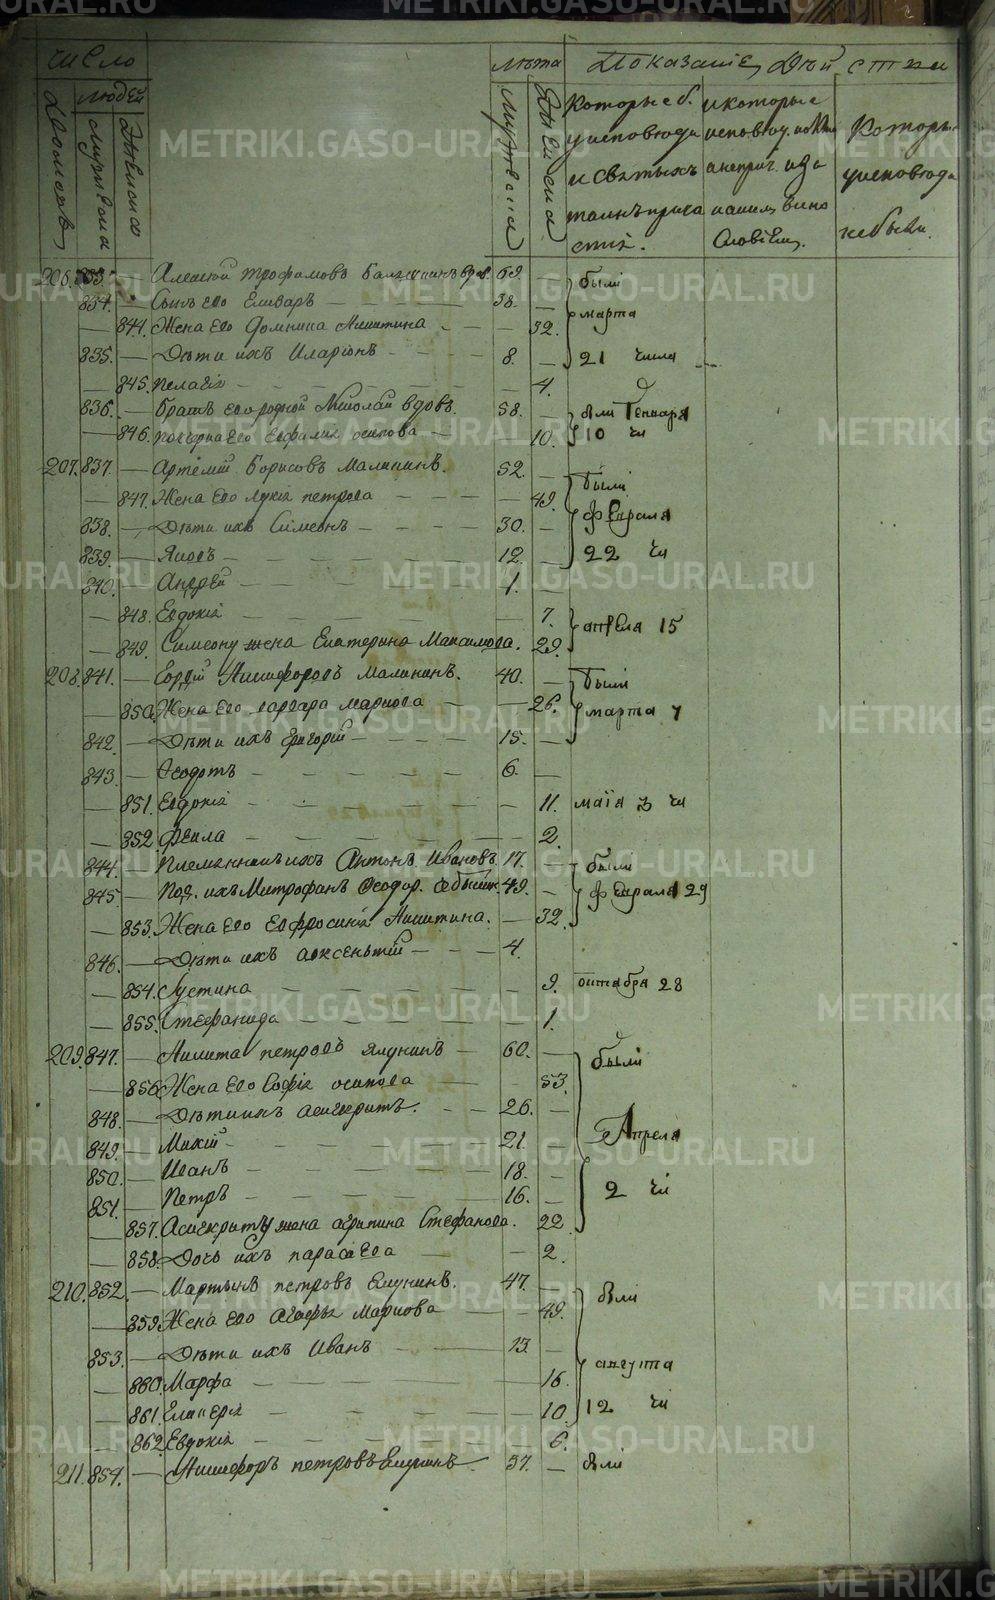 число лѣта Показаніе Дѣй ствія
Домовъ людей Мужеска Женска Мужеска Женска
Которые б. и которые
у исповѣди исповѣд. Которы
и святыхъ а неприч. и за у исповѣди
таинъ прича каким вино небыли
стія. Словіем.
206. 833. Алексѣй Трофимовъ вдов. 69 были
834. Сынъ его 38.
844. Жена его Домника Никитина 32. марта
835. Дѣти ихъ Иларіонъ 8. 21 числа
845. Пелагія 4.
836. Братъ его родной Николай вдовъ. 58. Генваря
846. его осипова 10. 10 чи
207. 837. Артемій Борисовъ Малининъ. 52. были
847. Жена его Лукія петрова 49.
838. Дѣти ихъ Симеонъ 30. февраля
839. Яковъ 12. 22 чи
840. Андрей 1.
848. Евдокія 7. апрѣля 15
849. Симеону жена Екатерина Максимова. 29.
208. 841. Никифоровъ Малининъ. 40. были
850. Жена его варвара маркова 26. марта 7
842. Дѣти ихъ григорій 15.
843. Ѳеодотъ 6.
851. Евдокія 11. маія 3 чи
852 Фекла 2.
844. Племянникъ ихъ Антонъ Ивановъ. 17. были
845 Под. ихъ Митрофанъ Ѳеодор. 49. февраля 29
853. Жена его Евфросинія Никитина. 32.
846. Дѣти ихъ авксентій 4.
854. Iустина 9. октября 28
855. Стефанида 1.
209. 847. Никита петровъ Ялунинъ 60. были
856. Жена его Софія осипова 53.
848. Дѣти ихъ асигкритъ. 26. Апреля
849. Мокій 21.
850. Иванъ 18. 2 чи
851. Петръ 16.
857. Асигкриту жена агрипина Стефанова. 22
858. Дочь ихъ парасева 2.
210. 852. Мартынъ петровъ Елунинъ. 47. были
859. Жена его Агафья маркова 49.
853. Дѣти ихъ Иванъ 13. августа
860. Марфа 16.
861. Гликерія 10. 12 чи
862. Евдокія 6.
211. 854. Никифоръ петровъ Елунинъ 37. были
METRIKI.GASO-URAL.RU